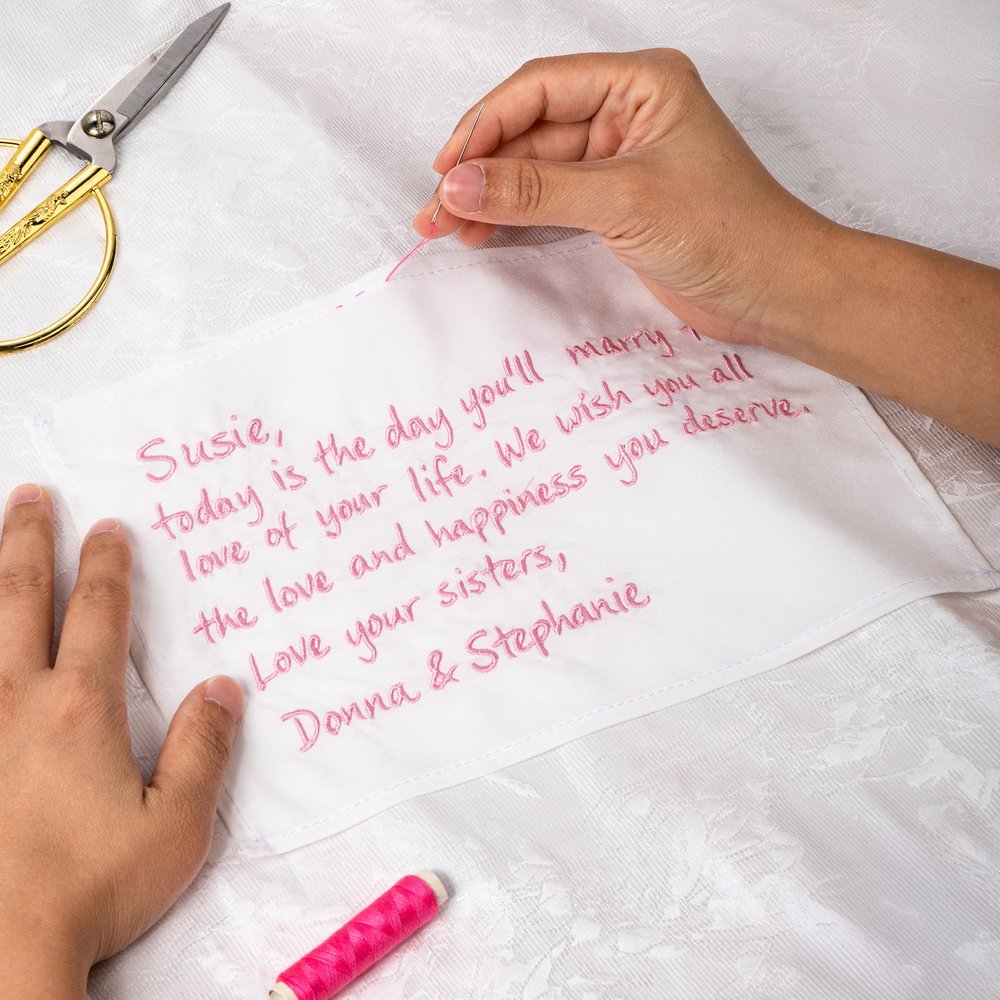 Susie,
today is the day you'll marry
love of your life. We wish you all
the love and happiness you deserve.
Love your sisters,
Donna & Stephanie